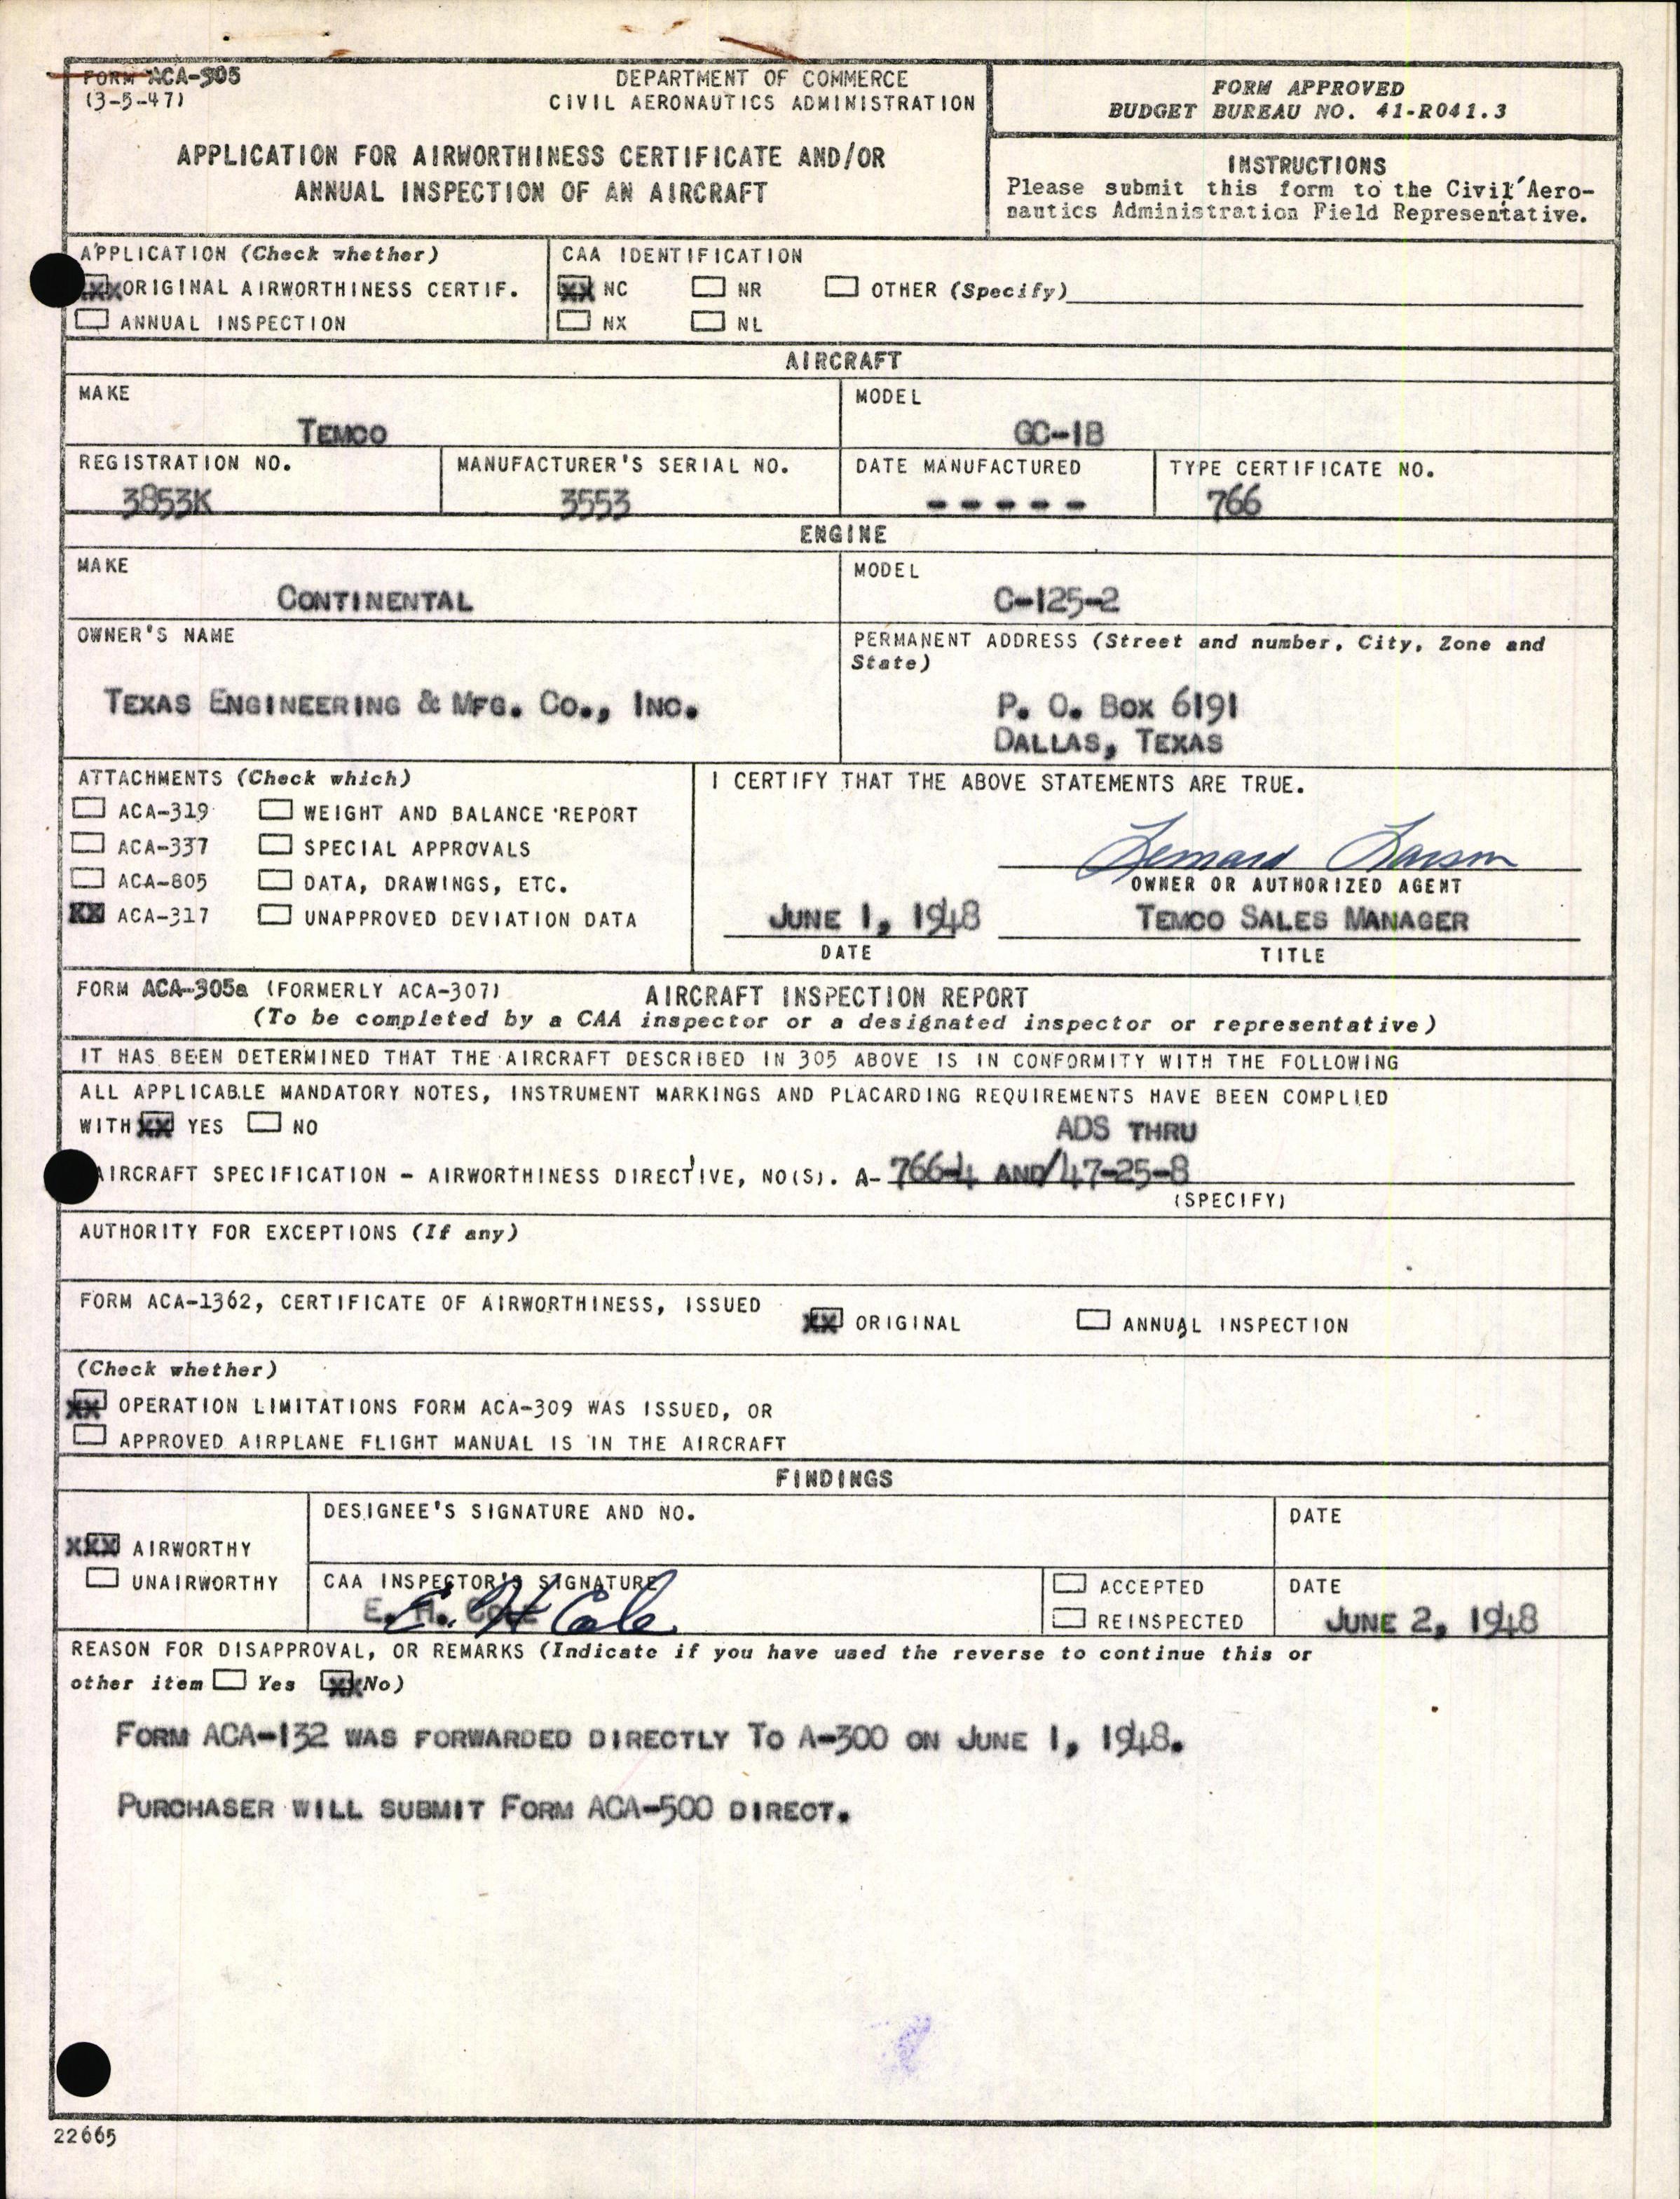 FORM ACA-305
(3-5-47)
DEPARTMENT OF COMMERCE
CIVIL AERONAUTICS ADMINISTRATION
APPLICATION FOR AIRWORTHINESS CERTIFICATE AND/OR
ANNUAL INSPECTION OF AN AIRCRAFT
FORM APPROVED
BUDGET BUREAU NO. 41-R041.3
INSTRUCTIONS
Please submit this form to the Civil Aero-
nautics Administration Field Representative.
APPLICATION (Check whether)
XXX ORIGINAL AIRWORTHINESS CERTIF.
ANNUAL INSPECTION
CAA IDENTIFICATION
XX NC NR OTHER (Specify)
NX NL
AIRCRAFT
MAKE
TEMCO
MODEL
GC-1B
REGISTRATION NO.
3853K
MANUFACTURER'S SERIAL NO.
3553
DATE MANUFACTURED
- - - - -
TYPE CERTIFICATE NO.
766
ENGINE
MAKE
CONTINENTAL
MODEL
C-125-2
OWNER'S NAME
TEXAS ENGINEERING & MFG. CO., INC.
PERMANENT ADDRESS (Street and number, City, Zone and
State)
P. O. BOX 6191
DALLAS, TEXAS
ATTACHMENTS (Check which)
ACA-319 WEIGHT AND BALANCE REPORT
ACA-337 SPECIAL APPROVALS
ACA-805 DATA, DRAWINGS, ETC.
XX ACA-317 UNAPPROVED DEVIATION DATA
I CERTIFY THAT THE ABOVE STATEMENTS ARE TRUE.
OWNER OR AUTHORIZED AGENT
JUNE 1, 1948
DATE
TEMCO SALES MANAGER
TITLE
FORM ACA-305a (FORMERLY ACA-307)
AIRCRAFT INSPECTION REPORT
(To be completed by a CAA inspector or a designated inspector or representative)
IT HAS BEEN DETERMINED THAT THE AIRCRAFT DESCRIBED IN 305 ABOVE IS IN CONFORMITY WITH THE FOLLOWING
ALL APPLICABLE MANDATORY NOTES, INSTRUMENT MARKINGS AND PLACARDING REQUIREMENTS HAVE BEEN COMPLIED
WITH XX YES NO
ADS THRU
AIRCRAFT SPECIFICATION - AIRWORTHINESS DIRECTIVE, NO(S). A- 766-4 AND/47-25-8
(SPECIFY)
AUTHORITY FOR EXCEPTIONS (If any)
FORM ACA-1362, CERTIFICATE OF AIRWORTHINESS, ISSUED
XX ORIGINAL ANNUAL INSPECTION
(Check whether)
XX OPERATION LIMITATIONS FORM ACA-309 WAS ISSUED, OR
APPROVED AIRPLANE FLIGHT MANUAL IS IN THE AIRCRAFT
FINDINGS
XXX AIRWORTHY
UNAIRWORTHY
DESIGNEE'S SIGNATURE AND NO.
DATE
CAA INSPECTOR'S SIGNATURE
E. H. COLE
E. H Cole
ACCEPTED
REINSPECTED
DATE
JUNE 2, 1948
REASON FOR DISAPPROVAL, OR REMARKS (Indicate if you have used the reverse to continue this or
other item Yes XX No)
FORM ACA-132 WAS FORWARDED DIRECTLY TO A-300 ON JUNE 1, 1948.
PURCHASER WILL SUBMIT FORM ACA-500 DIRECT.
22665